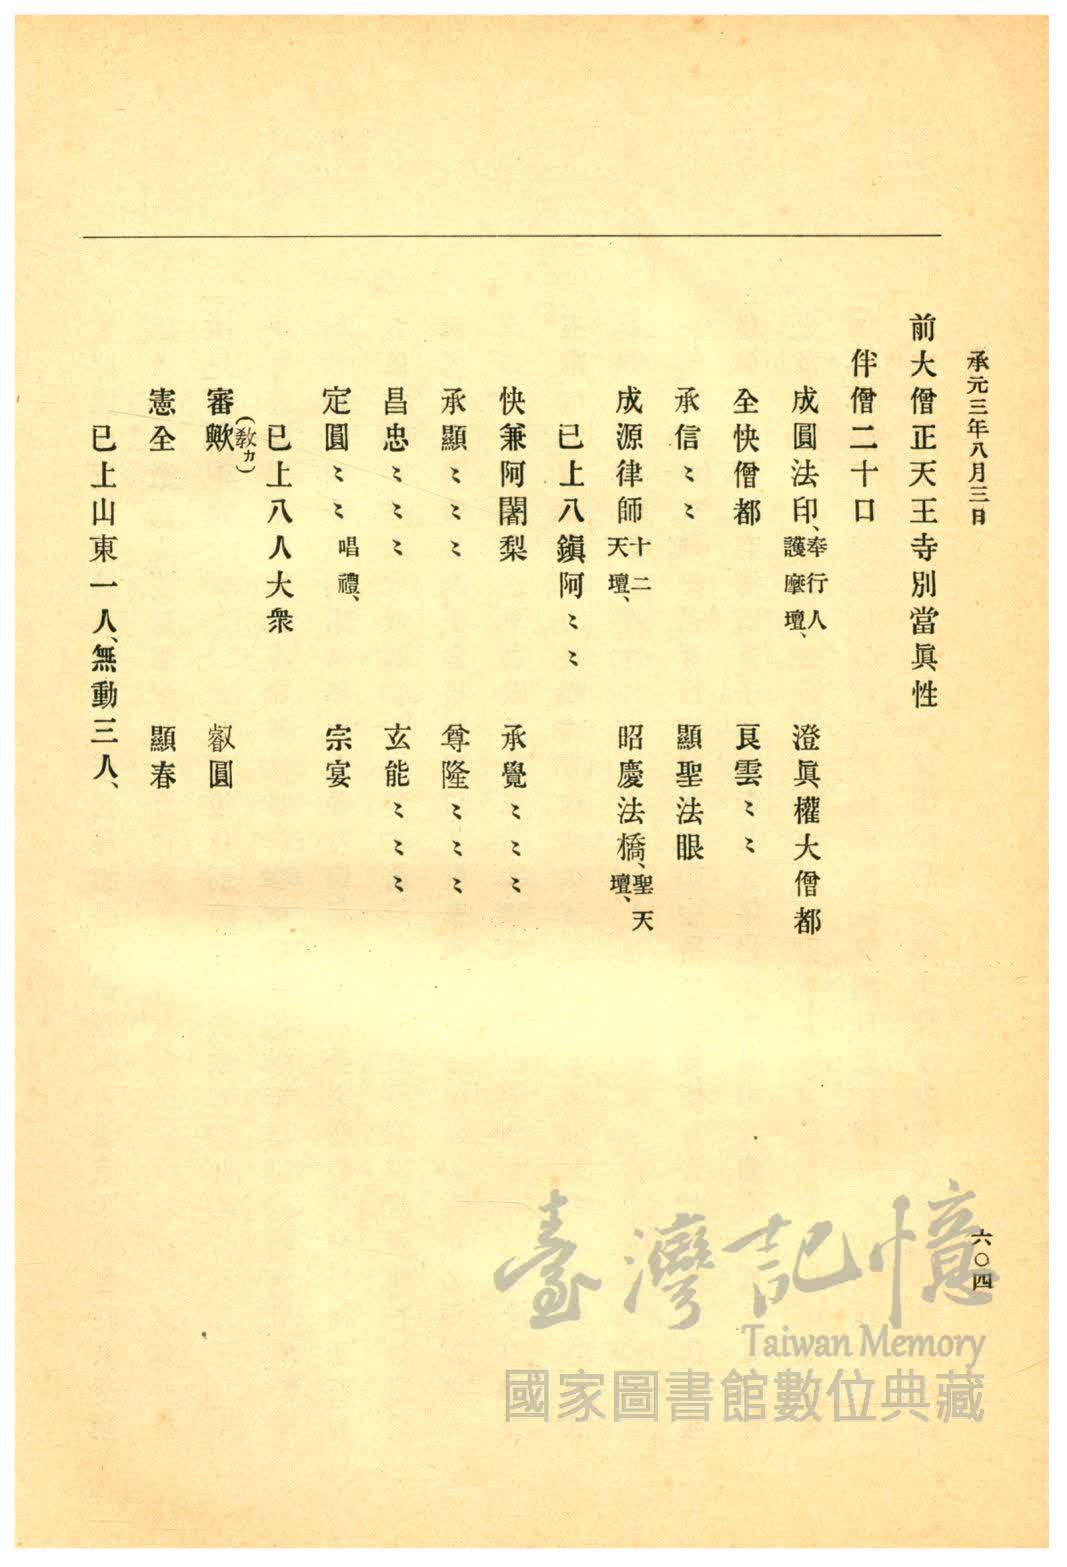 承元三年八月三日
前大僧正天王寺別當眞性
伴僧二十口
成圓法印、奉行人護摩壇、　澄眞權大僧都
全快僧都　良雲〻〻
承信〻〻　顯聖法眼
成源律師、十二天壇、　昭慶法橋、聖天壇、
已上八鎭阿〻〻
快兼阿闍梨　承覺〻〻〻
承顯〻〻〻　尊隆〻〻〻
昌忠〻〻〻　玄能〻〻〻
定圓〻〻唱禮、　宗宴
已上八人大衆
審歟(敎カ)　叡圓
憲全　顯春
已上山東一人、無動三人、
六〇四
臺灣記憶
Taiwan Memory
國家圖書館數位典藏